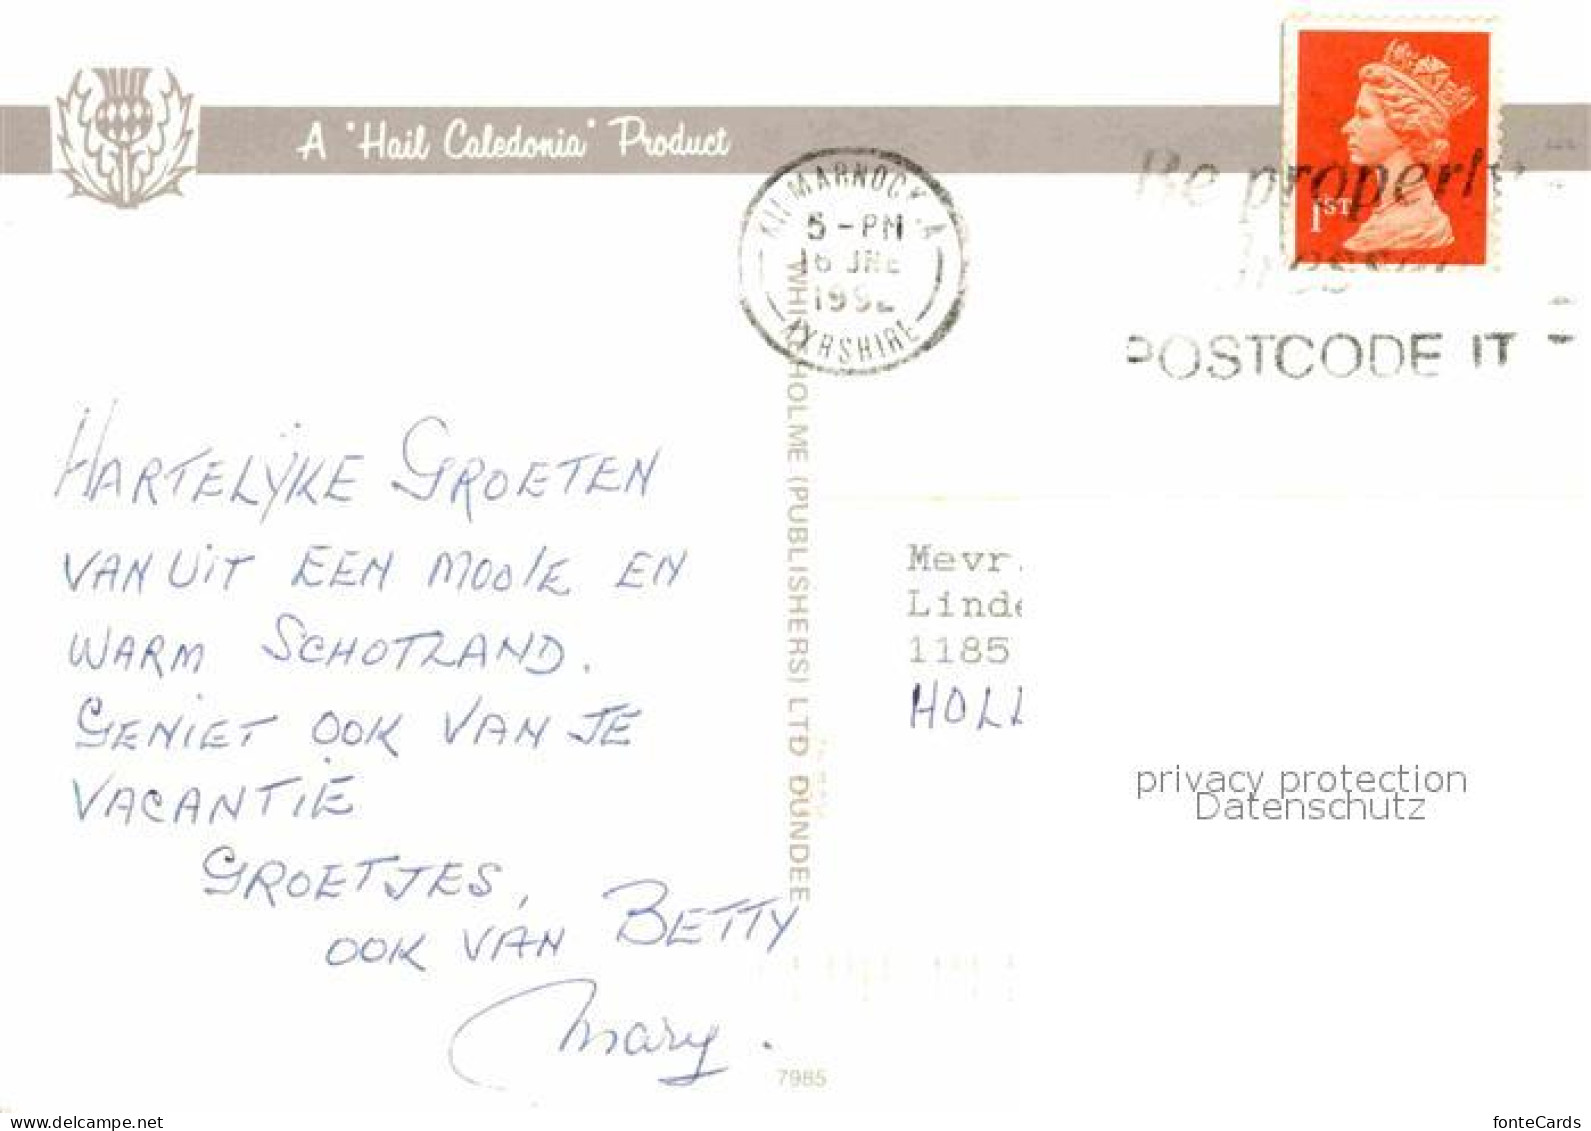 A "Hail Caledonia" Product
KILMARNOCK A
5-PM
16 JNE
1992
AYRSHIRE
1ST
Be properly
POSTCODE IT
HARTELIJKE GROETEN
VANUIT EEN MOOIE EN
WARM SCHOTLAND.
GENIET OOK VAN JE
VACANTIE
GROETJES,
OOK VAN BETTY
Mary.
WHITEHOLME (PUBLISHERS) LTD DUNDEE
7985
Mevr.
Linde
1185
HOLL
privacy protection
Datenschutz
www.delcampe.net
fonteCards